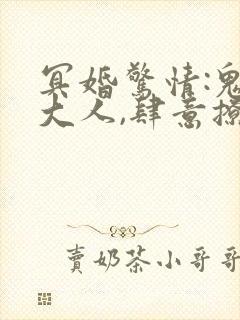 冥婚驚情:鬼
大人,肆意撩
賣奶茶小哥哥